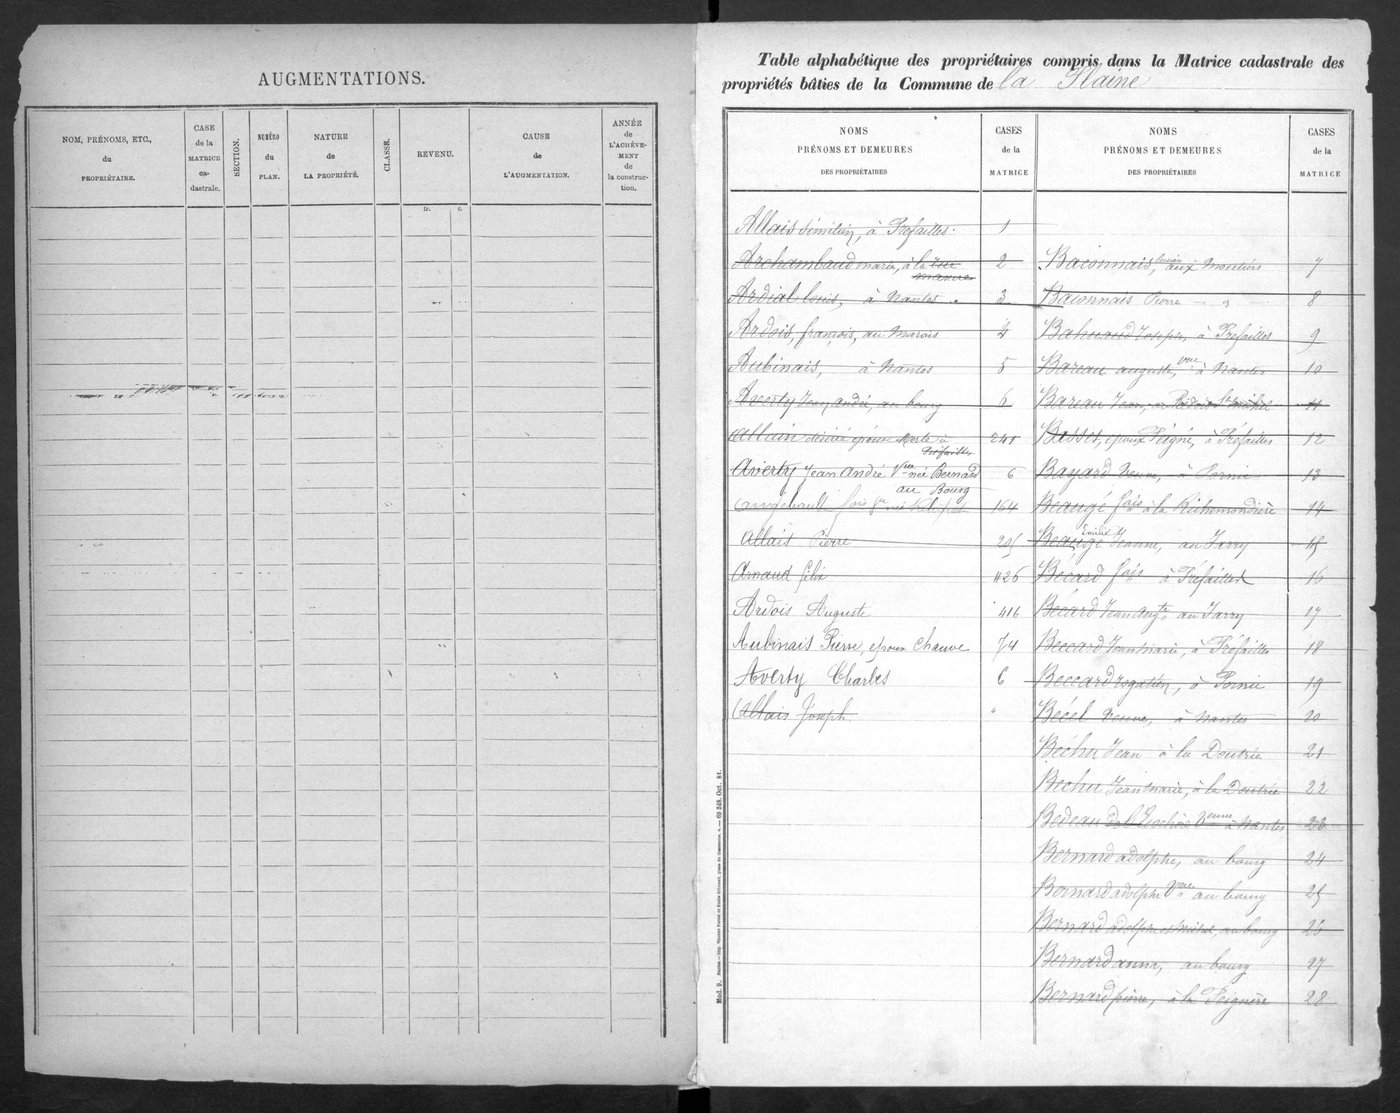 AUGMENTATIONS.
NOM, PRÉNOMS, ETC.,
du
PROPRIÉTAIRE.
CASE
de la
MATRICE
ca-
dastrale.
SECTION.
NUMÉRO
du
PLAN.
NATURE
de
LA PROPRIÉTÉ.
CLASSE.
REVENU.
fr. c.
CAUSE
de
L'AUGMENTATION.
ANNÉE
de
L'ACHÈVE-
MENT
de
la construc-
tion.
Table alphabétique des propriétaires compris dans la Matrice cadastrale des
propriétés bâties de la Commune de la Plaine
NOMS
PRÉNOMS ET DEMEURES
DES PROPRIÉTAIRES
CASES
de la
MATRICE
Allais Siméon, à Préfailles. 1
Archambaud marie, à la 2
Ardial louis, à Nantes 3
Ardois, françois, au Marais 4
Aubinais, à Nantes 5
Averty Jean andré, au bourg 6
Alluin désiré époux à 241
Préfailles
Averty Jean André Vve née Bernard 6
au Bourg
164
Allais Pierre 205
Arnaud félix 426
Ardois Auguste 416
Aubinais Pierre, époux Chauve 74
Averty Charles 6
Allais Joseph "
NOMS
PRÉNOMS ET DEMEURES
DES PROPRIÉTAIRES
CASES
de la
MATRICE
Baconnais, aux Moutiers 7
Baconnais Pierre — " — 8
Bahuaud Joseph, à Préfailles 9
Bareau auguste, Vve à Nantes 10
Bareau Jean, 11
Basset, époux Peigné, à Préfailles 12
Bayard Veuve, à Pornic 13
Beaugé fois à la Richemondière 14
Beaugé Emilie Jeanne, au Jarry 15
Bécard fois à Préfailles 16
Bécard Jean Augte au Jarry 17
Beccard Jean marie, à Préfailles 18
Beccard rogatien, à Pornic 19
Bécel Veuve, à Nantes 20
Béchu Jean à la Doutrie 21
Béchu Jean marie, à la Doutrie 22
Bedeau de Veuve à Nantes 23
Bernard adolphe, au bourg 24
Bernard adolphe Vve au bourg 25
Bernard adolphe et Michel, au bourg 26
Bernard anna, au bourg 27
Bernard pierre, à la Peignère 28